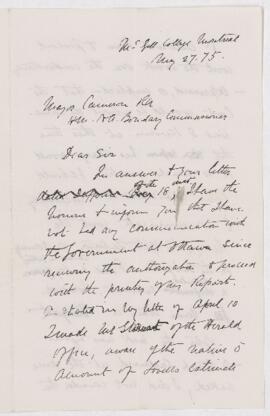 McGill College Montreal
May 27. 75.
Major Cameron RA
H.M. N.A. Boundary Commissioner
Dear Sir
In answer to your letter
of the 18 inst I have the
honour to inform you that I have
not had any communication with
the Government at Ottawa since
receiving the authorization to proceed
with the printing of my Report.
As stated in my letter of April 10
I made Mr of the Herald
Office, aware of the nature &
amount of